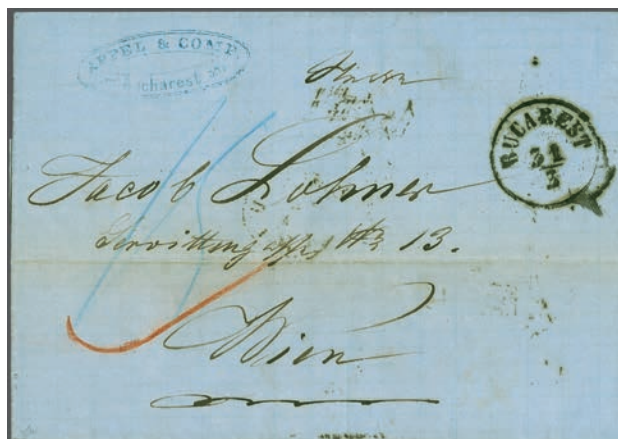 APPEL & COMP.
Bucharest
Herrn
BUCAREST
31
3
Jacob Lohner
No 13.
Wien